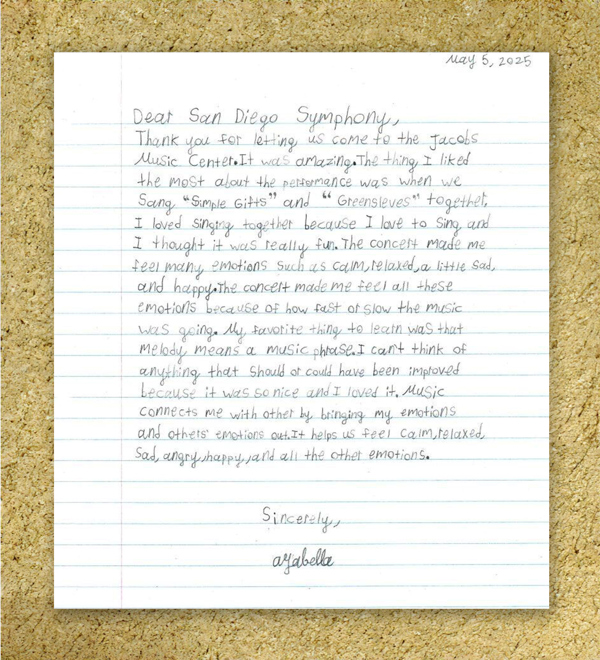 May 5, 2025
Dear San Diego Symphony,
Thank you for letting us come to the Jacobs
Music Center. It was amazing. The thing I liked
the most about the performance was when we
sang "Simple Gifts" and "Greensleves" together.
I loved singing together because I love to sing, and
I thought it was really fun. The concert made me
feel many emotions such as calm, relaxed, a little sad,
and happy. The concert made me feel all these
emotions because of how fast or slow the music
was going. My favorite thing to learn was that
melody means a music phrase. I can't think of
anything that should or could have been improved
because it was so nice and I loved it. Music
connects me with other by bringing my emotions
and others' emotions out. It helps us feel calm, relaxed,
sad, angry, happy, and all the other emotions.
Sincerely,,
ayabella